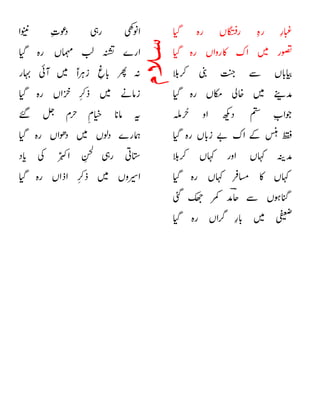 سلام
غبارِ رہِ رفتگاں رہ گیا
تصور میں اک کارواں رہ گیا
بیاباں سے جنت بنی کربلا
مدینے میں خالی مکاں رہ گیا
جوابِ ستم دیکھ او حرملہ
فقط ہنس کے اک بے زباں رہ گیا
مدینہ کہاں اور کہاں کربلا
کہاں کا مسافر کہاں رہ گیا
گناہوں سے حامد کمر جھک گئی
ضعیفی میں بارِ گراں رہ گیا
انوکھی رہی دعوتِ نینوا
ارے تشنہ لب مہماں رہ گیا
نہ پھر باغِ زہرا میں آئی بہار
زمانے میں ذکرِ خزاں رہ گیا
یہ مانا خیامِ حرم جل گئے
ہمارے دلوں میں دھواں رہ گیا
ستاتی رہی لحنِ اکبر کی یاد
اسیروں میں ذکرِ اذاں رہ گیا